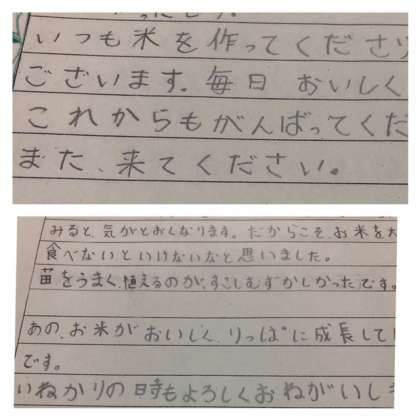 いつも米を作ってくださり
ございます。毎日 おいしく
これからもがんばってくだ
また、来てください。
みると、気がとおくなります。だからこそ、お米を大
食べないといけないなと思いました。
苗をうまく、植えるのが、すこしむずかしかったです。
あの、お米が おいしく、りっぱに成長してい
です。
いねかりの時もよろしくおねがいし